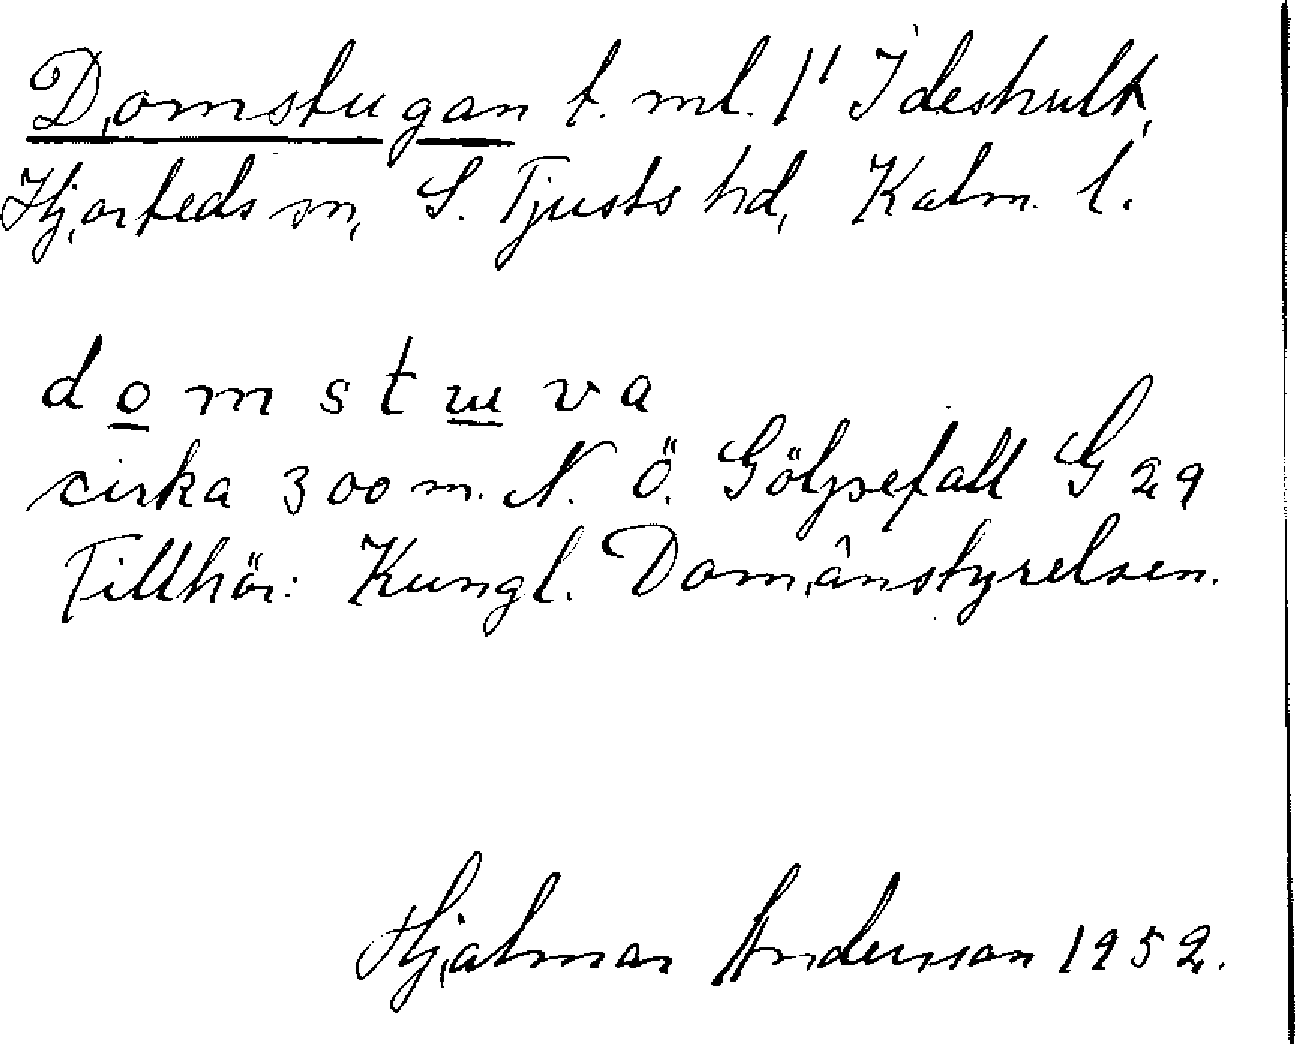 Domstugan t. ml. 1" Ideshult,
Hjorteds sn, S. Tjusts hd, Kalm. l.
domstɯva
cirka 300 m. N. Ö. Göljsefall G 29
Tillhör: Kungl. Domänstyrelsen.
Hjalmar Andersson 1952.